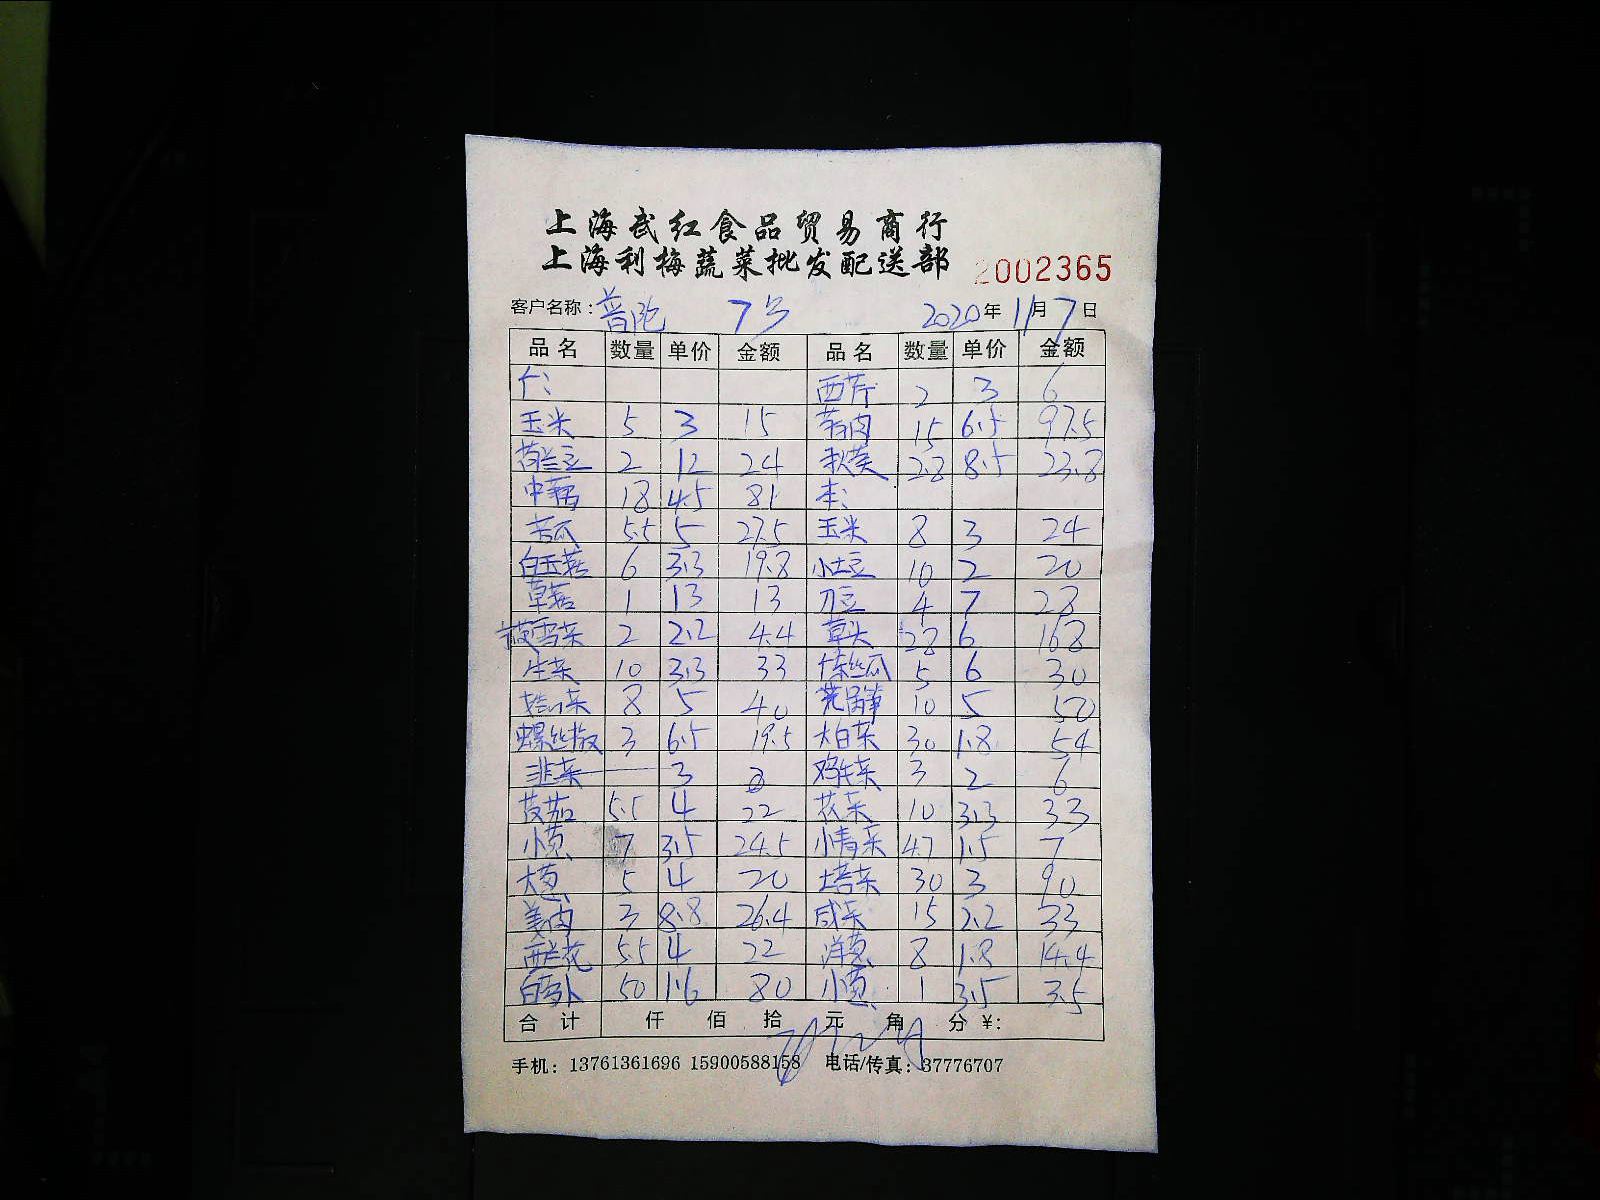 上海武红食品贸易商行
上海利梅蔬菜批发配送部 2002365
客户名称：普陀 7号 2020年11月7日
品名 数量 单价 金额 品名 数量 单价 金额
西芹 2 3 6
玉米 5 3 15 15 6.5 97.5
荷兰豆 2 12 24 2.8 8.5 23.8
中藕 18 4.5 81 本：
苦瓜 5.5 5 27.5 玉米 8 3 24
白玉菇 6 3.3 19.8 小土豆 10 2 20
草菇 1 13 13 刀豆 4 7 28
2 2.2 4.4 草头 28 6 168
生菜 10 3.3 33 丝瓜 5 6 30
8 5 40 莴笋 10 5 50
螺丝椒 3 6.5 19.5 大白菜 30 1.8 54
韭菜 3 鸡毛菜 3 2 6
茄 5.5 4 22 花菜 10 3.3 33
小葱 7 3.5 24.5 小青菜 4.7 1.5 7
大葱 5 4 20 塔菜 30 3 90
姜肉 3 8.8 26.4 咸菜 15 2.2 33
西兰花 5.5 4 22 洋葱 8 1.8 14.4
白萝卜 50 1.6 80 小葱 1 3.5 3.5
合计 仟 佰 拾 元 角 分 ¥：
手机：13761361696 15900588158 电话/传真：37776707